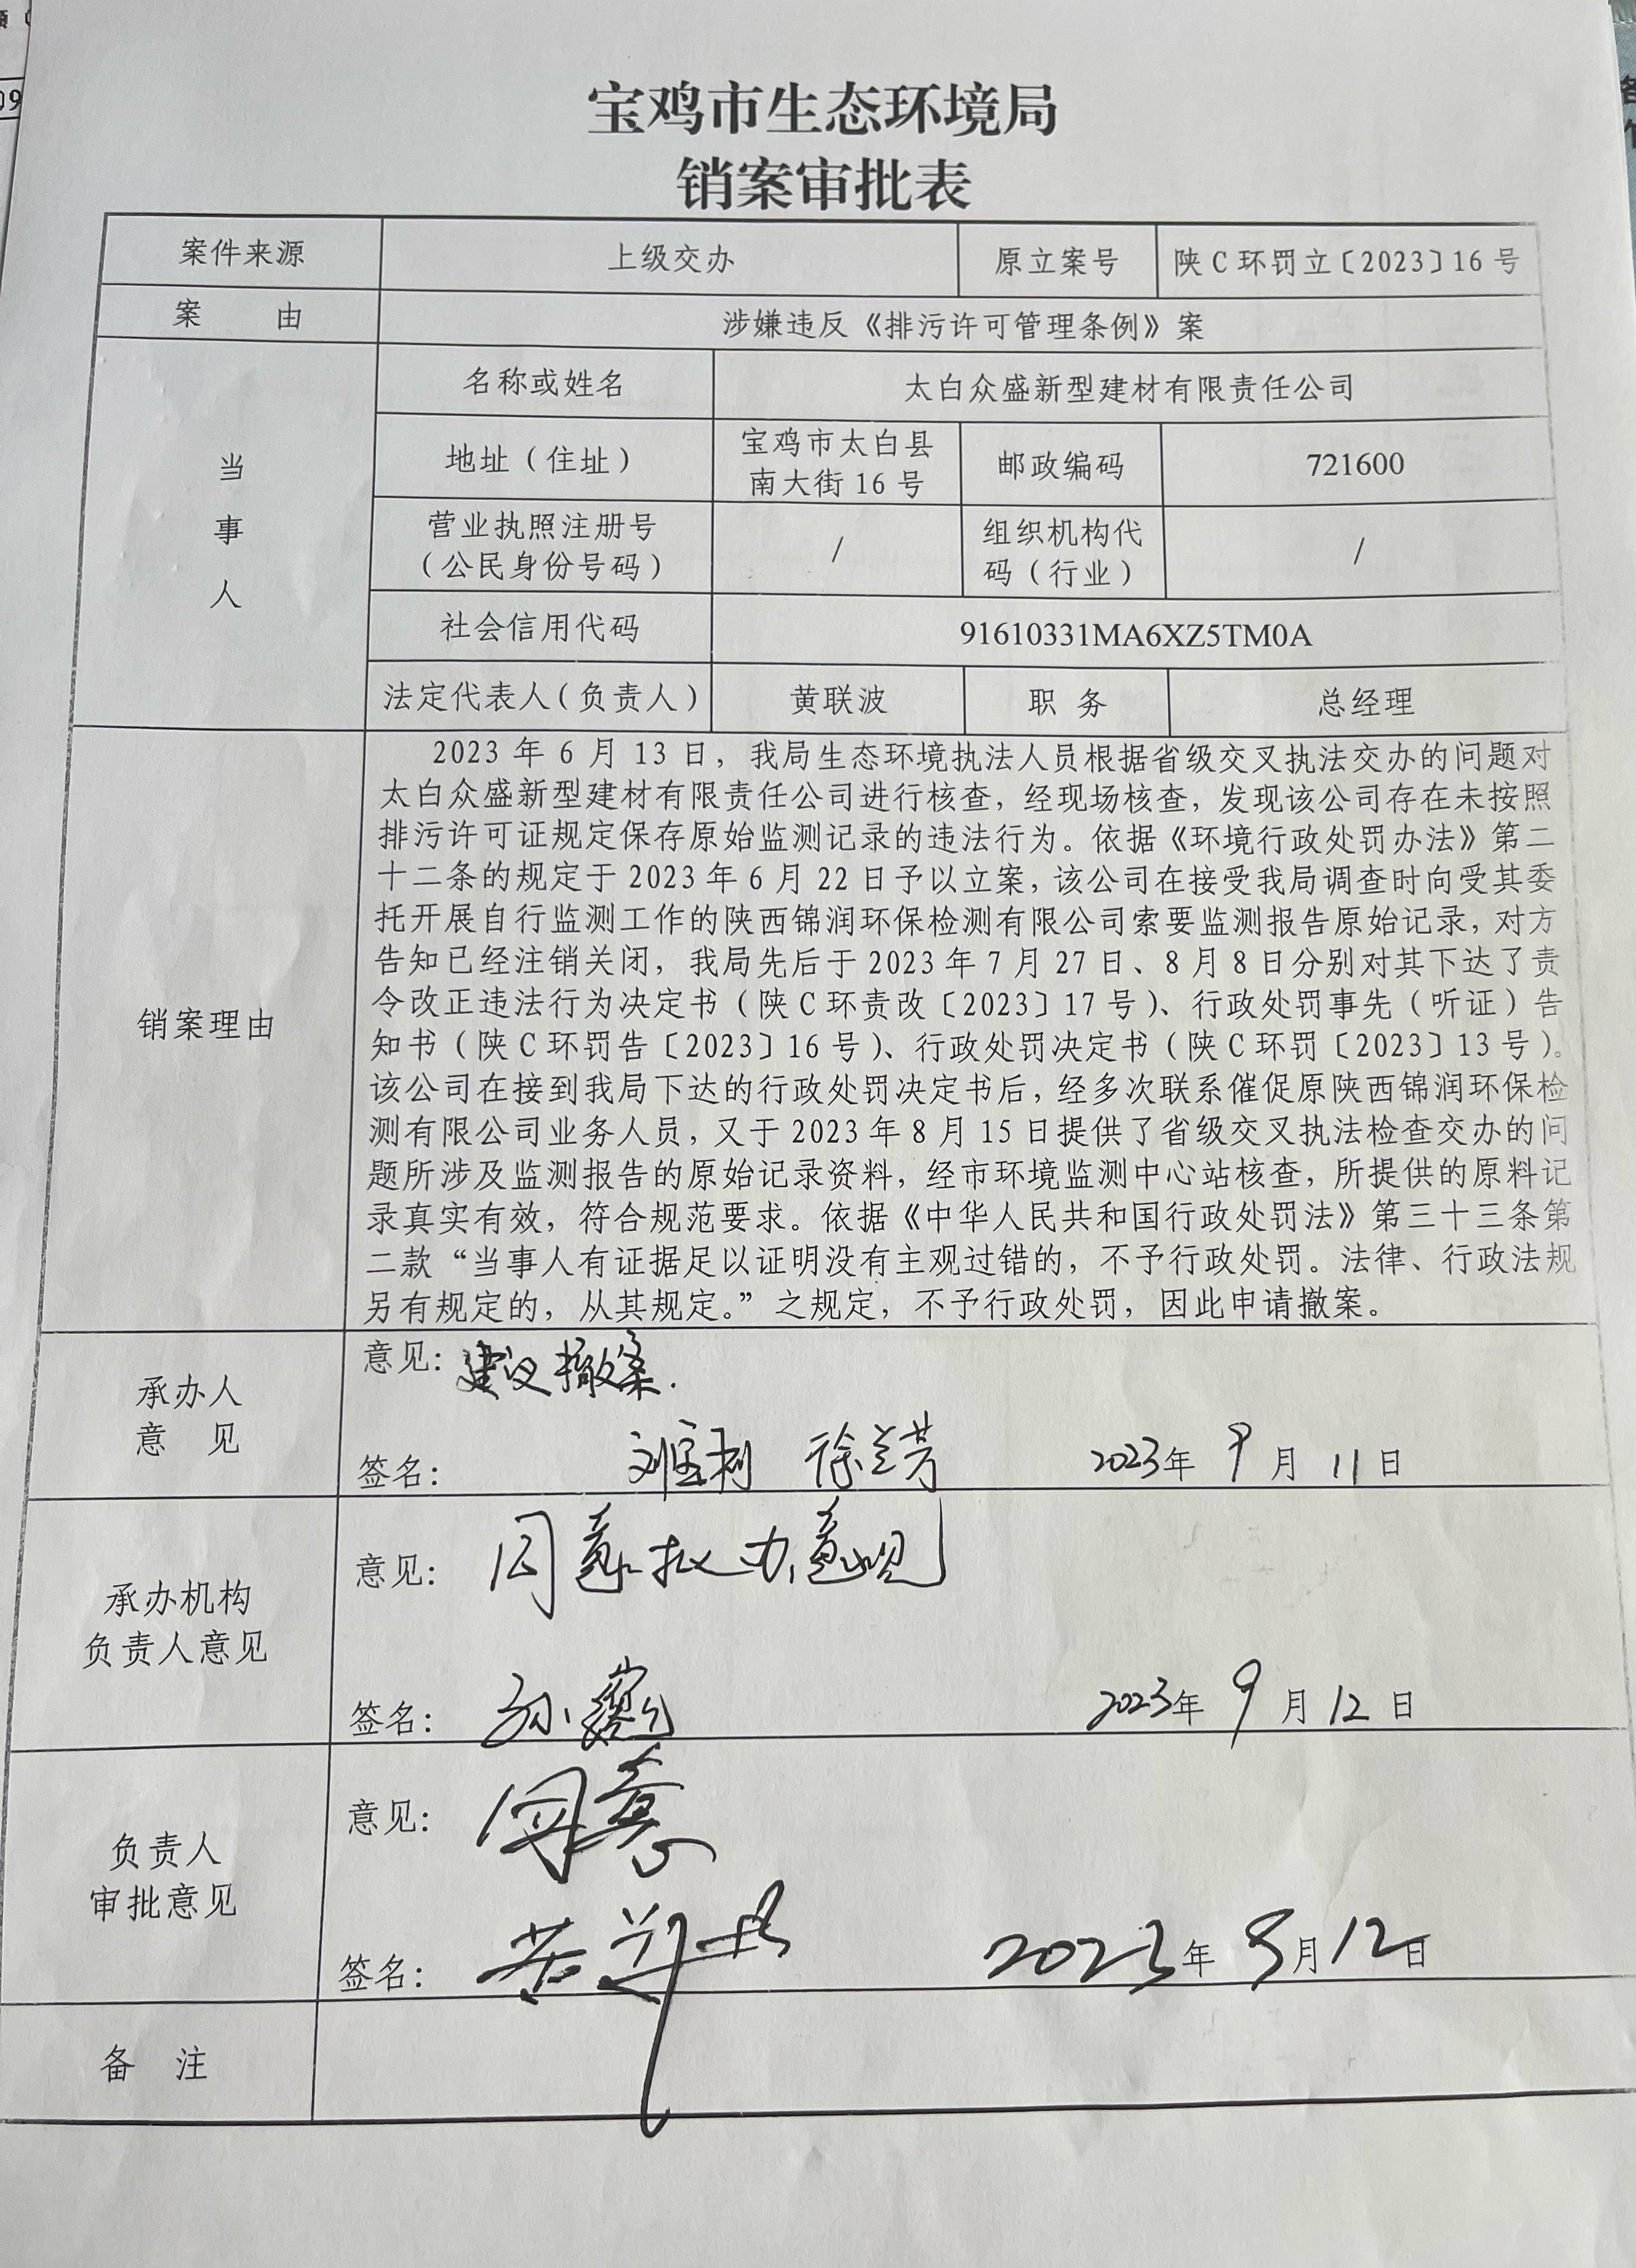 宝鸡市生态环境局
销案审批表
案件来源 上级交办 原立案号 陕C环罚立〔2023〕16号
案 由 涉嫌违反《排污许可管理条例》案
当事人
名称或姓名 太白众盛新型建材有限责任公司
地址（住址） 宝鸡市太白县
南大街16号 邮政编码 721600
营业执照注册号
（公民身份号码） / 组织机构代
码（行业） /
社会信用代码 91610331MA6XZ5TM0A
法定代表人（负责人） 黄联波 职 务 总经理
销案理由
2023年6月13日，我局生态环境执法人员根据省级交叉执法交办的问题对
太白众盛新型建材有限责任公司进行核查，经现场核查，发现该公司存在未按照
排污许可证规定保存原始监测记录的违法行为。依据《环境行政处罚办法》第二
十二条的规定于2023年6月22日予以立案，该公司在接受我局调查时向受其委
托开展自行监测工作的陕西锦润环保检测有限公司索要监测报告原始记录，对方
告知已经注销关闭，我局先后于2023年7月27日、8月8日分别对其下达了责
令改正违法行为决定书（陕C环责改〔2023〕17号）、行政处罚事先（听证）告
知书（陕C环罚告〔2023〕16号）、行政处罚决定书（陕C环罚〔2023〕13号）。
该公司在接到我局下达的行政处罚决定书后，经多次联系催促原陕西锦润环保检
测有限公司业务人员，又于2023年8月15日提供了省级交叉执法检查交办的问
题所涉及监测报告的原始记录资料，经市环境监测中心站核查，所提供的原料记
录真实有效，符合规范要求。依据《中华人民共和国行政处罚法》第三十三条第
二款“当事人有证据足以证明没有主观过错的，不予行政处罚。法律、行政法规
另有规定的，从其规定。”之规定，不予行政处罚，因此申请撤案。
承办人
意 见
意见：建议撤案.
签名： 徐兰芳 2023年9月11日
承办机构
负责人意见
意见：同意拟办意见
签名： 2023年9月12日
负责人
审批意见
意见：同意
签名： 2023年9月12日
备 注